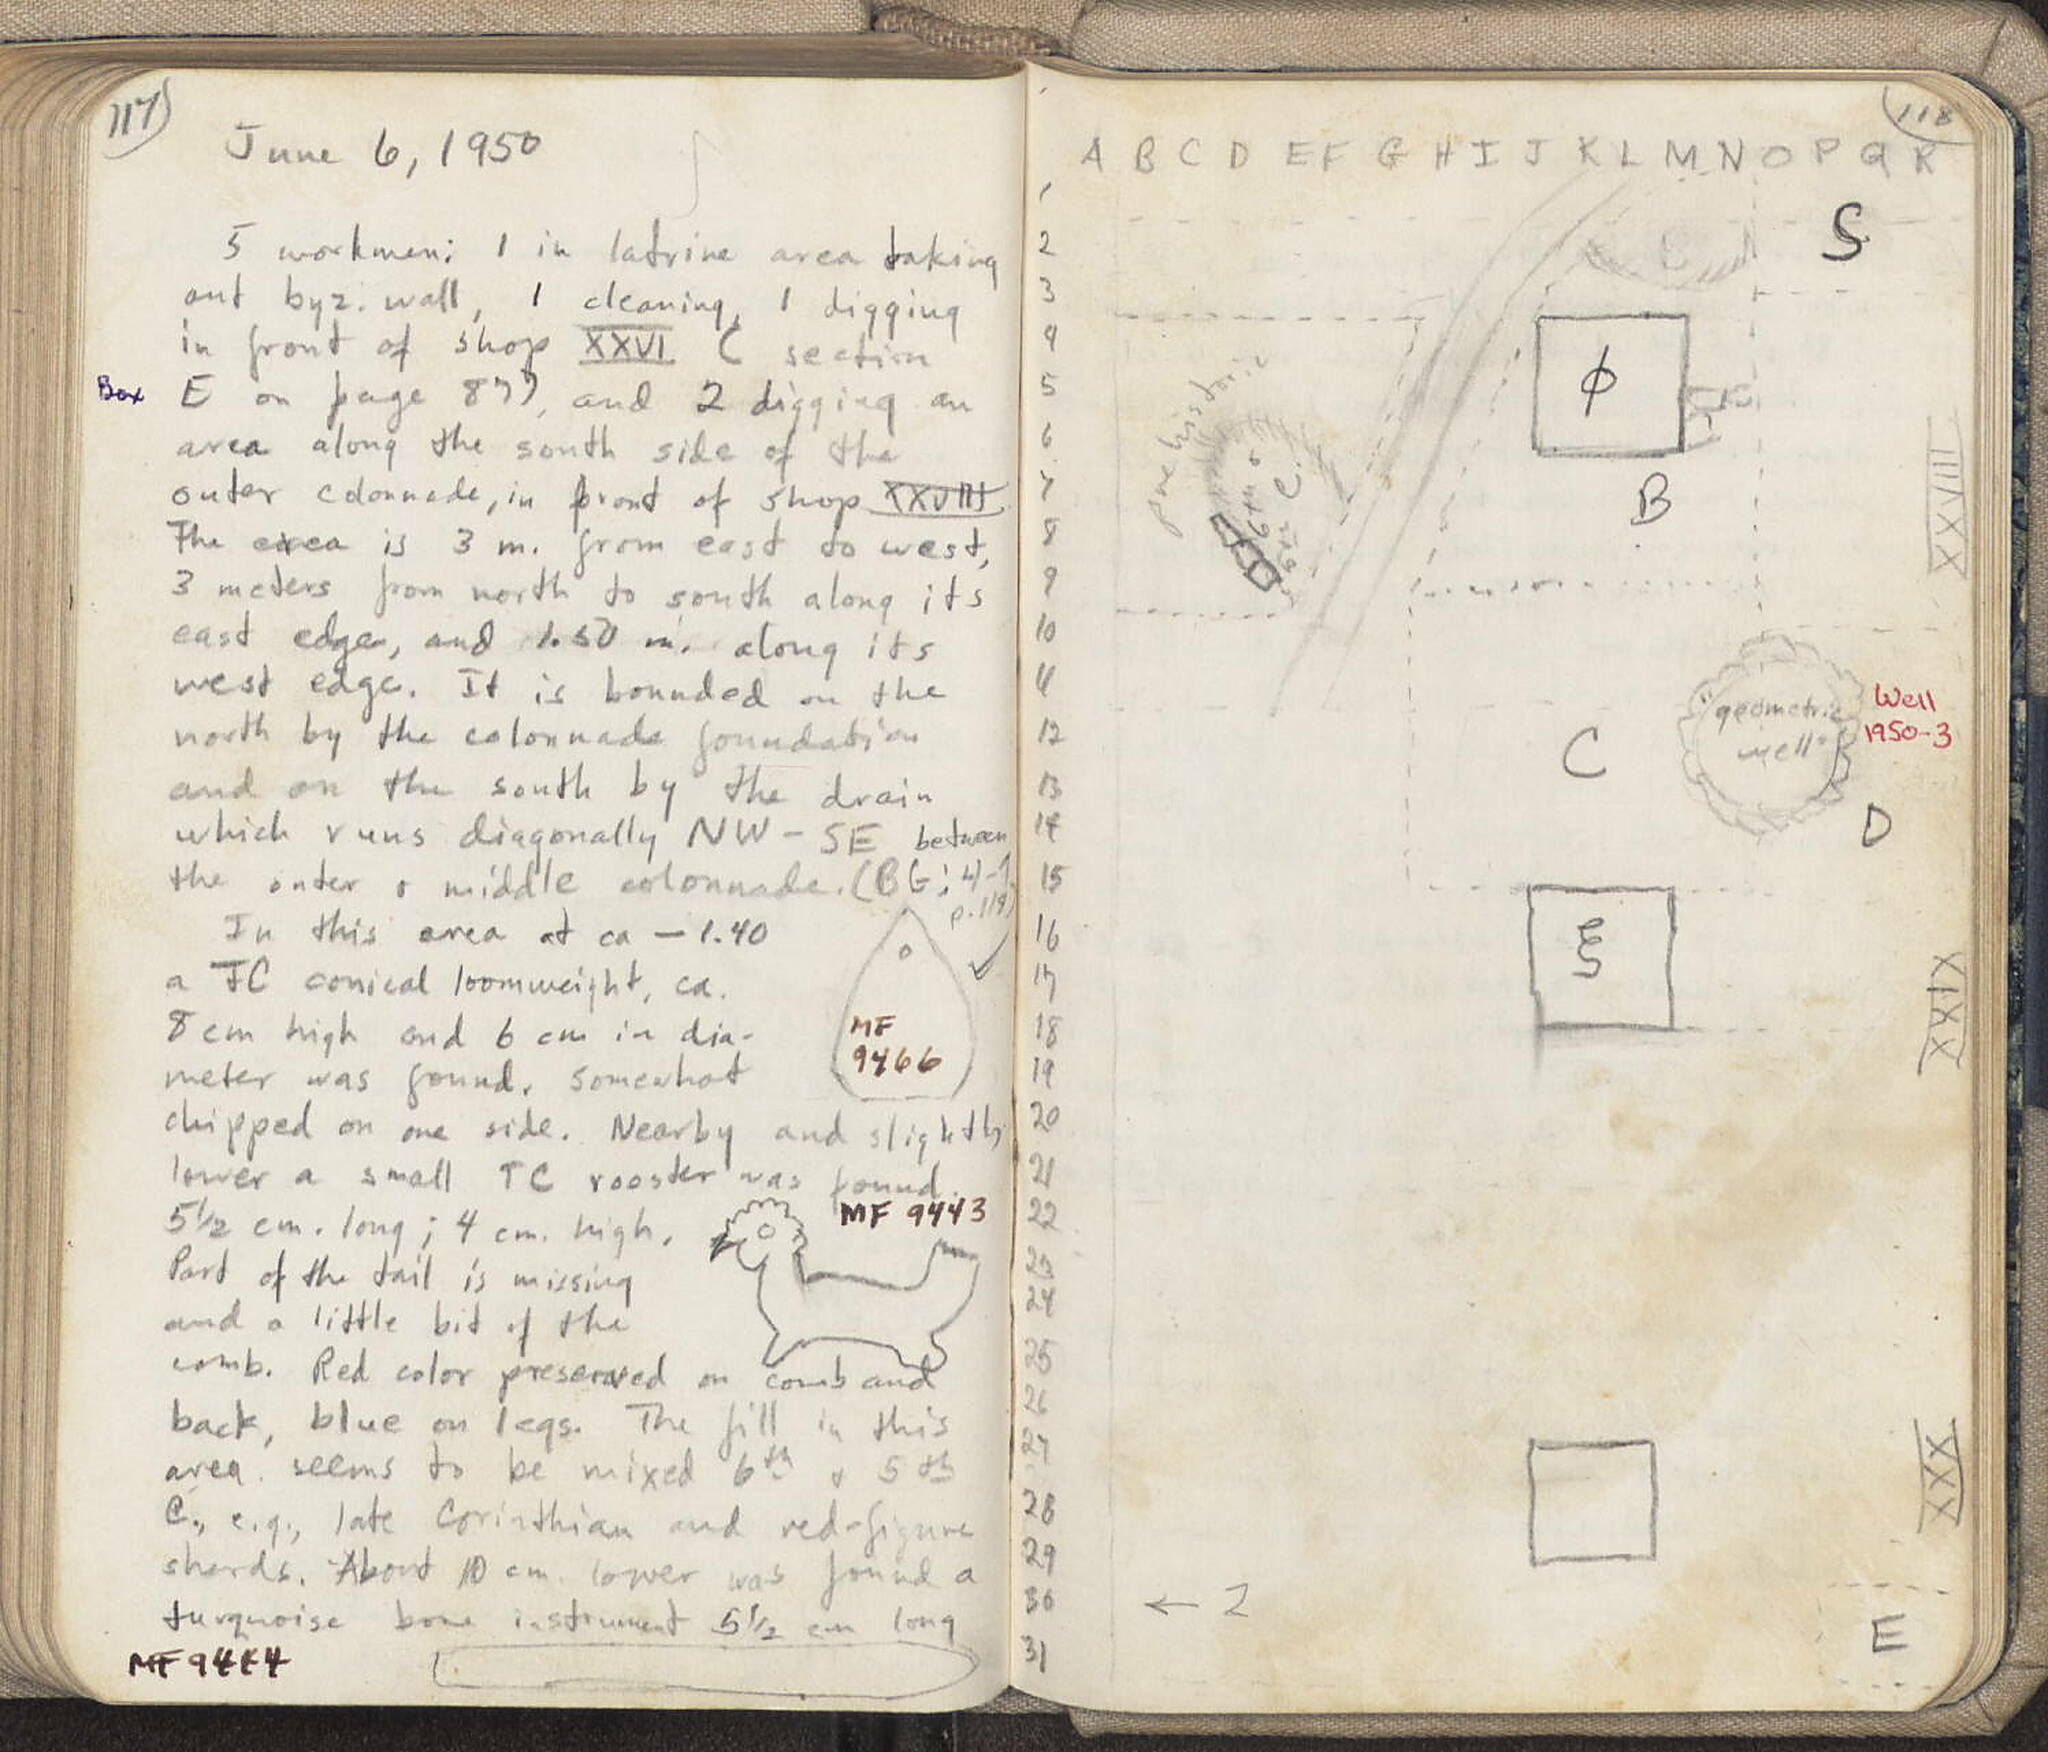 117
June 6, 1950
5 workmen: 1 in latrine area taking
out byz. wall, 1 cleaning, 1 digging
in front of shop XXVI C section
Box E on page 87), and 2 digging an
area along the south side of the
outer colonnade, in front of shop XXVIII
The area is 3 m. from east to west,
3 meters from north to south along its
east edge, and 1.50 m. along its
west edge. It is bounded on the
north by the colonnade foundation
and on the south by the drain
which runs diagonally NW - SE between
the outer & middle colonnade. (BG; 4)-9
p. 118)
In this area at ca - 1.40
a TC conical loomweight, ca.
8 cm high and 6 cm in dia-
meter was found, somewhat
MF
9466
chipped on one side. Nearby and slightly
lower a small TC rooster was found.
5½ cm. long; 4 cm. high.
MF 9443
Part of the tail is missing
and a little bit of the
comb. Red color preserved on comb and
back, blue on legs. The fill in this
area seems to be mixed 6th & 5th
C., e.g., late Corinthian and red-figure
sherds. About 10 cm. lower was found a
turquoise bone instrument 5½ cm long
MF 9444
118
A B C D E F G H I J K L M N O P Q R
1
2
3
4
5
6
7
8
9
10
11
12
13
14
15
16
17
18
19
20
21
22
23
24
25
26
27
28
29
30
31
S
ϕ
prehistoric
6th &
5th C.
B
XXVIII
"geometric
well"
Well
1950-3
C
D
ξ
XXIX
XXX
← Z
E